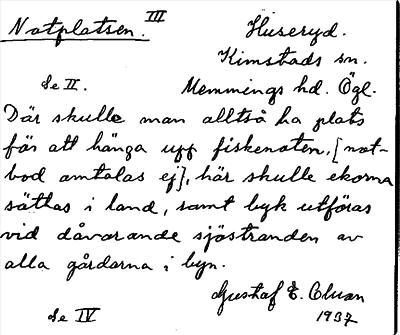 Notplatsen. III
Huseryd.
Kimstads sn.
Se II.
Memmings hd. Ögl.
Där skulle man alltså ha plats
för att hänga upp fiskenoten, [not-
bod omtalas ej], här skulle ekorna
sättas i land, samt byk utföras
vid dåvarande sjöstranden av
alla gårdarna i byn.
Gustaf E.
1937
Se IV